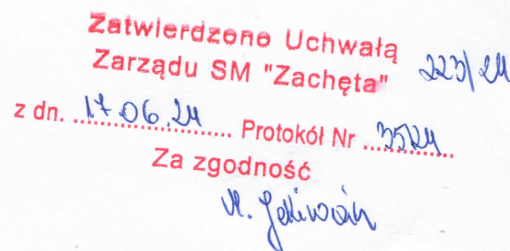 Zatwierdzono Uchwałą 223/24
Zarządu SM "Zachęta"
z dn. 17.06.24 Protokół Nr 35/24
Za zgodność